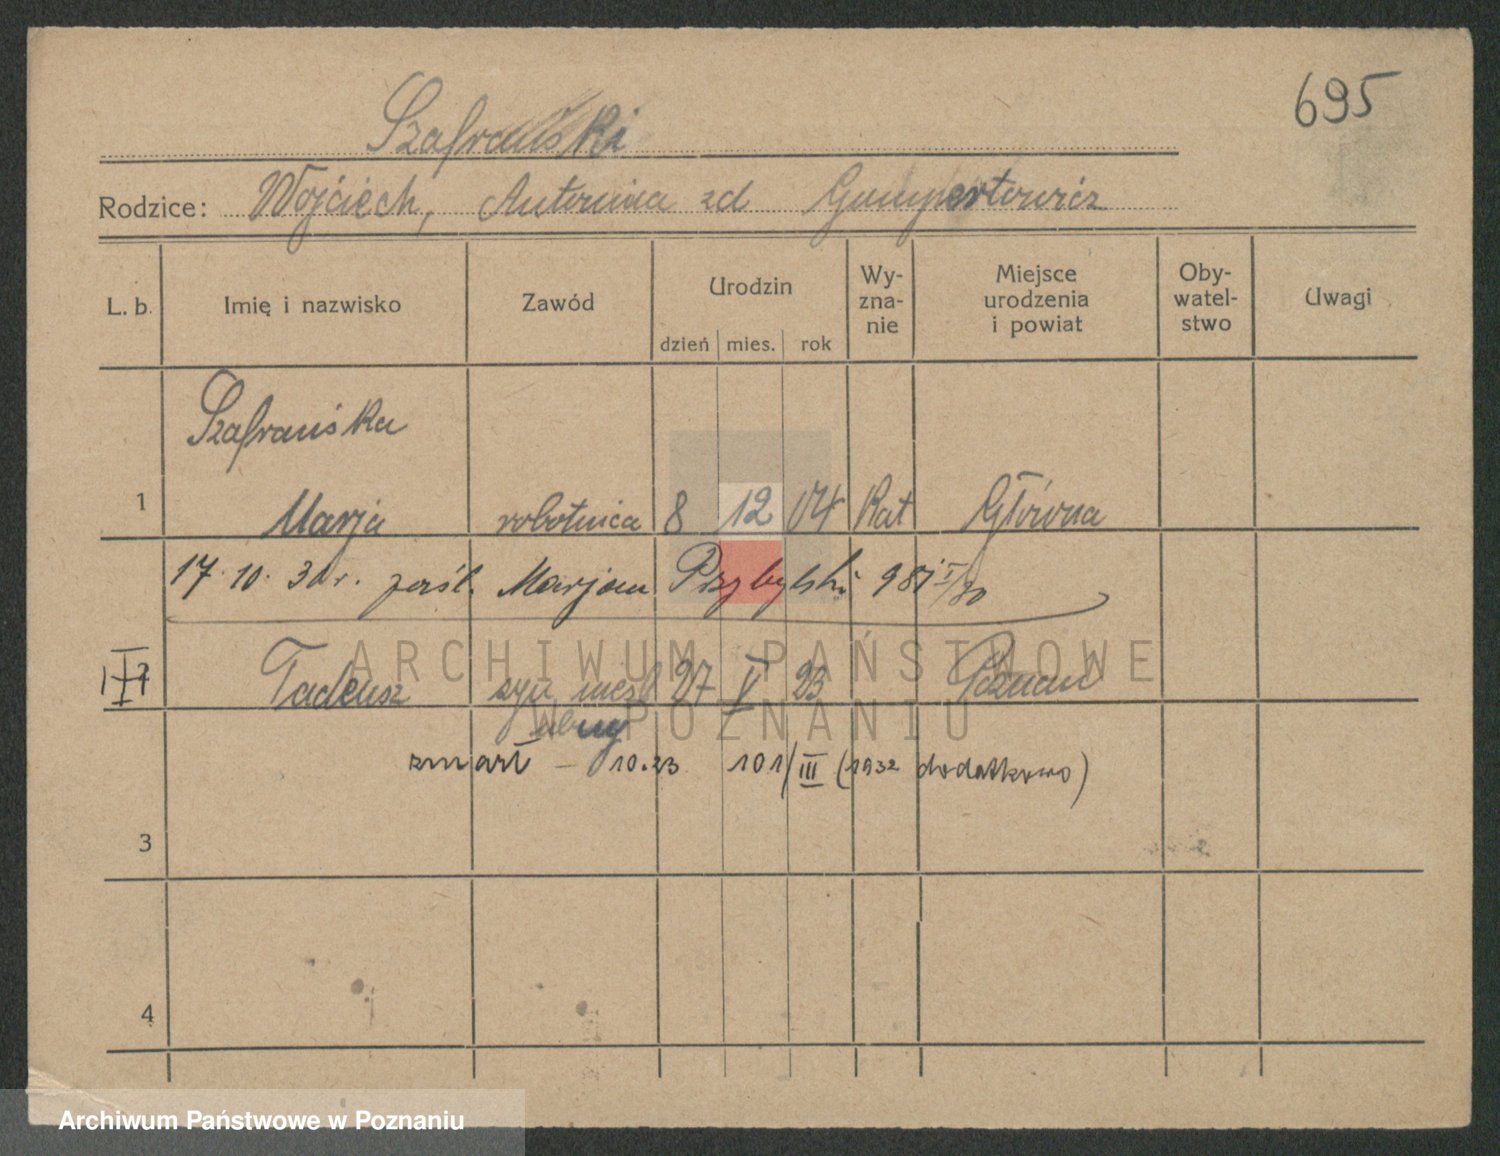 695
Szafrański
Rodzice: Wojciech, Antonina zd Gumpertowicz
L. b. Imię i nazwisko Zawód Urodzin dzień mies. rok Wy-zna-nie Miejsce urodzenia i powiat Oby-watel-stwo Uwagi
Szafrańska
1 Marja robotnica 8 12 04 Kat Główna
17.10.30r. zaśl. Marjan Przybylski 981 I/30
Tadeusz syn 27 V 23 Poznań
ARCHIWUM PAŃSTWOWE
W POZNANIU
zmarł – 10.23 101/III (1932 dodatkowo)
3
4
Archiwum Państwowe w Poznaniu